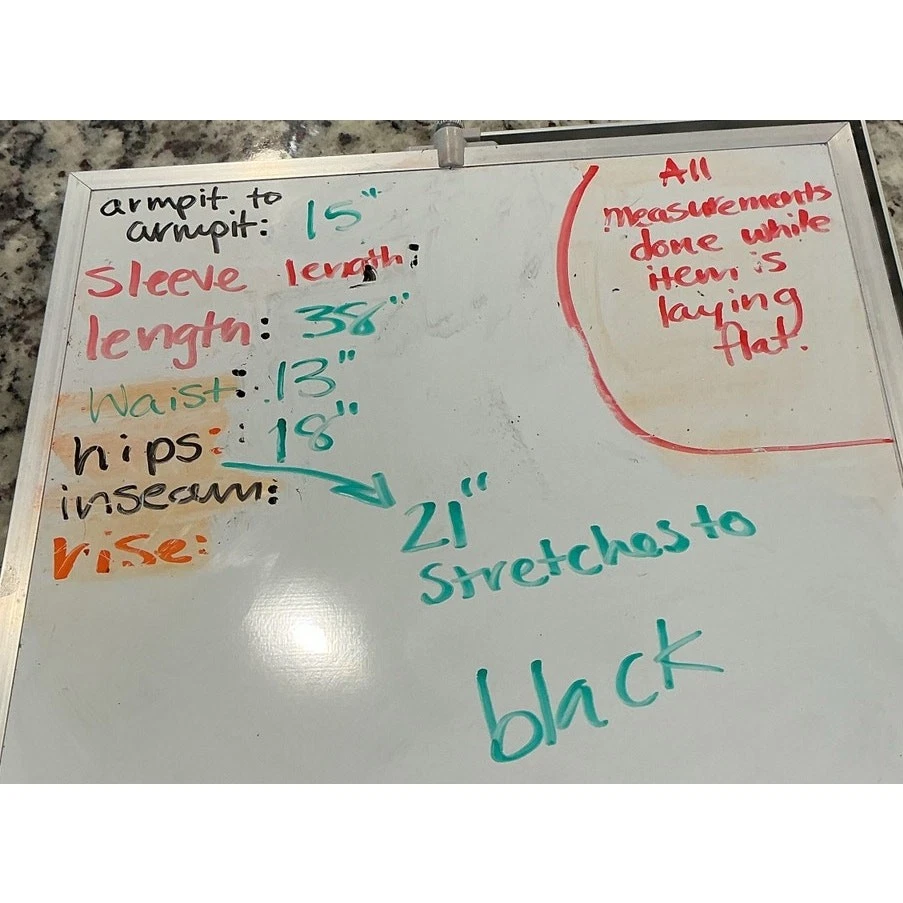 armpit to
armpit: 15"
sleeve length:
length: 38"
Waist: 13"
hips: 18"
inseam:
rise:
21"
Stretches to
black
All
measurements
done while
item is
laying
flat.